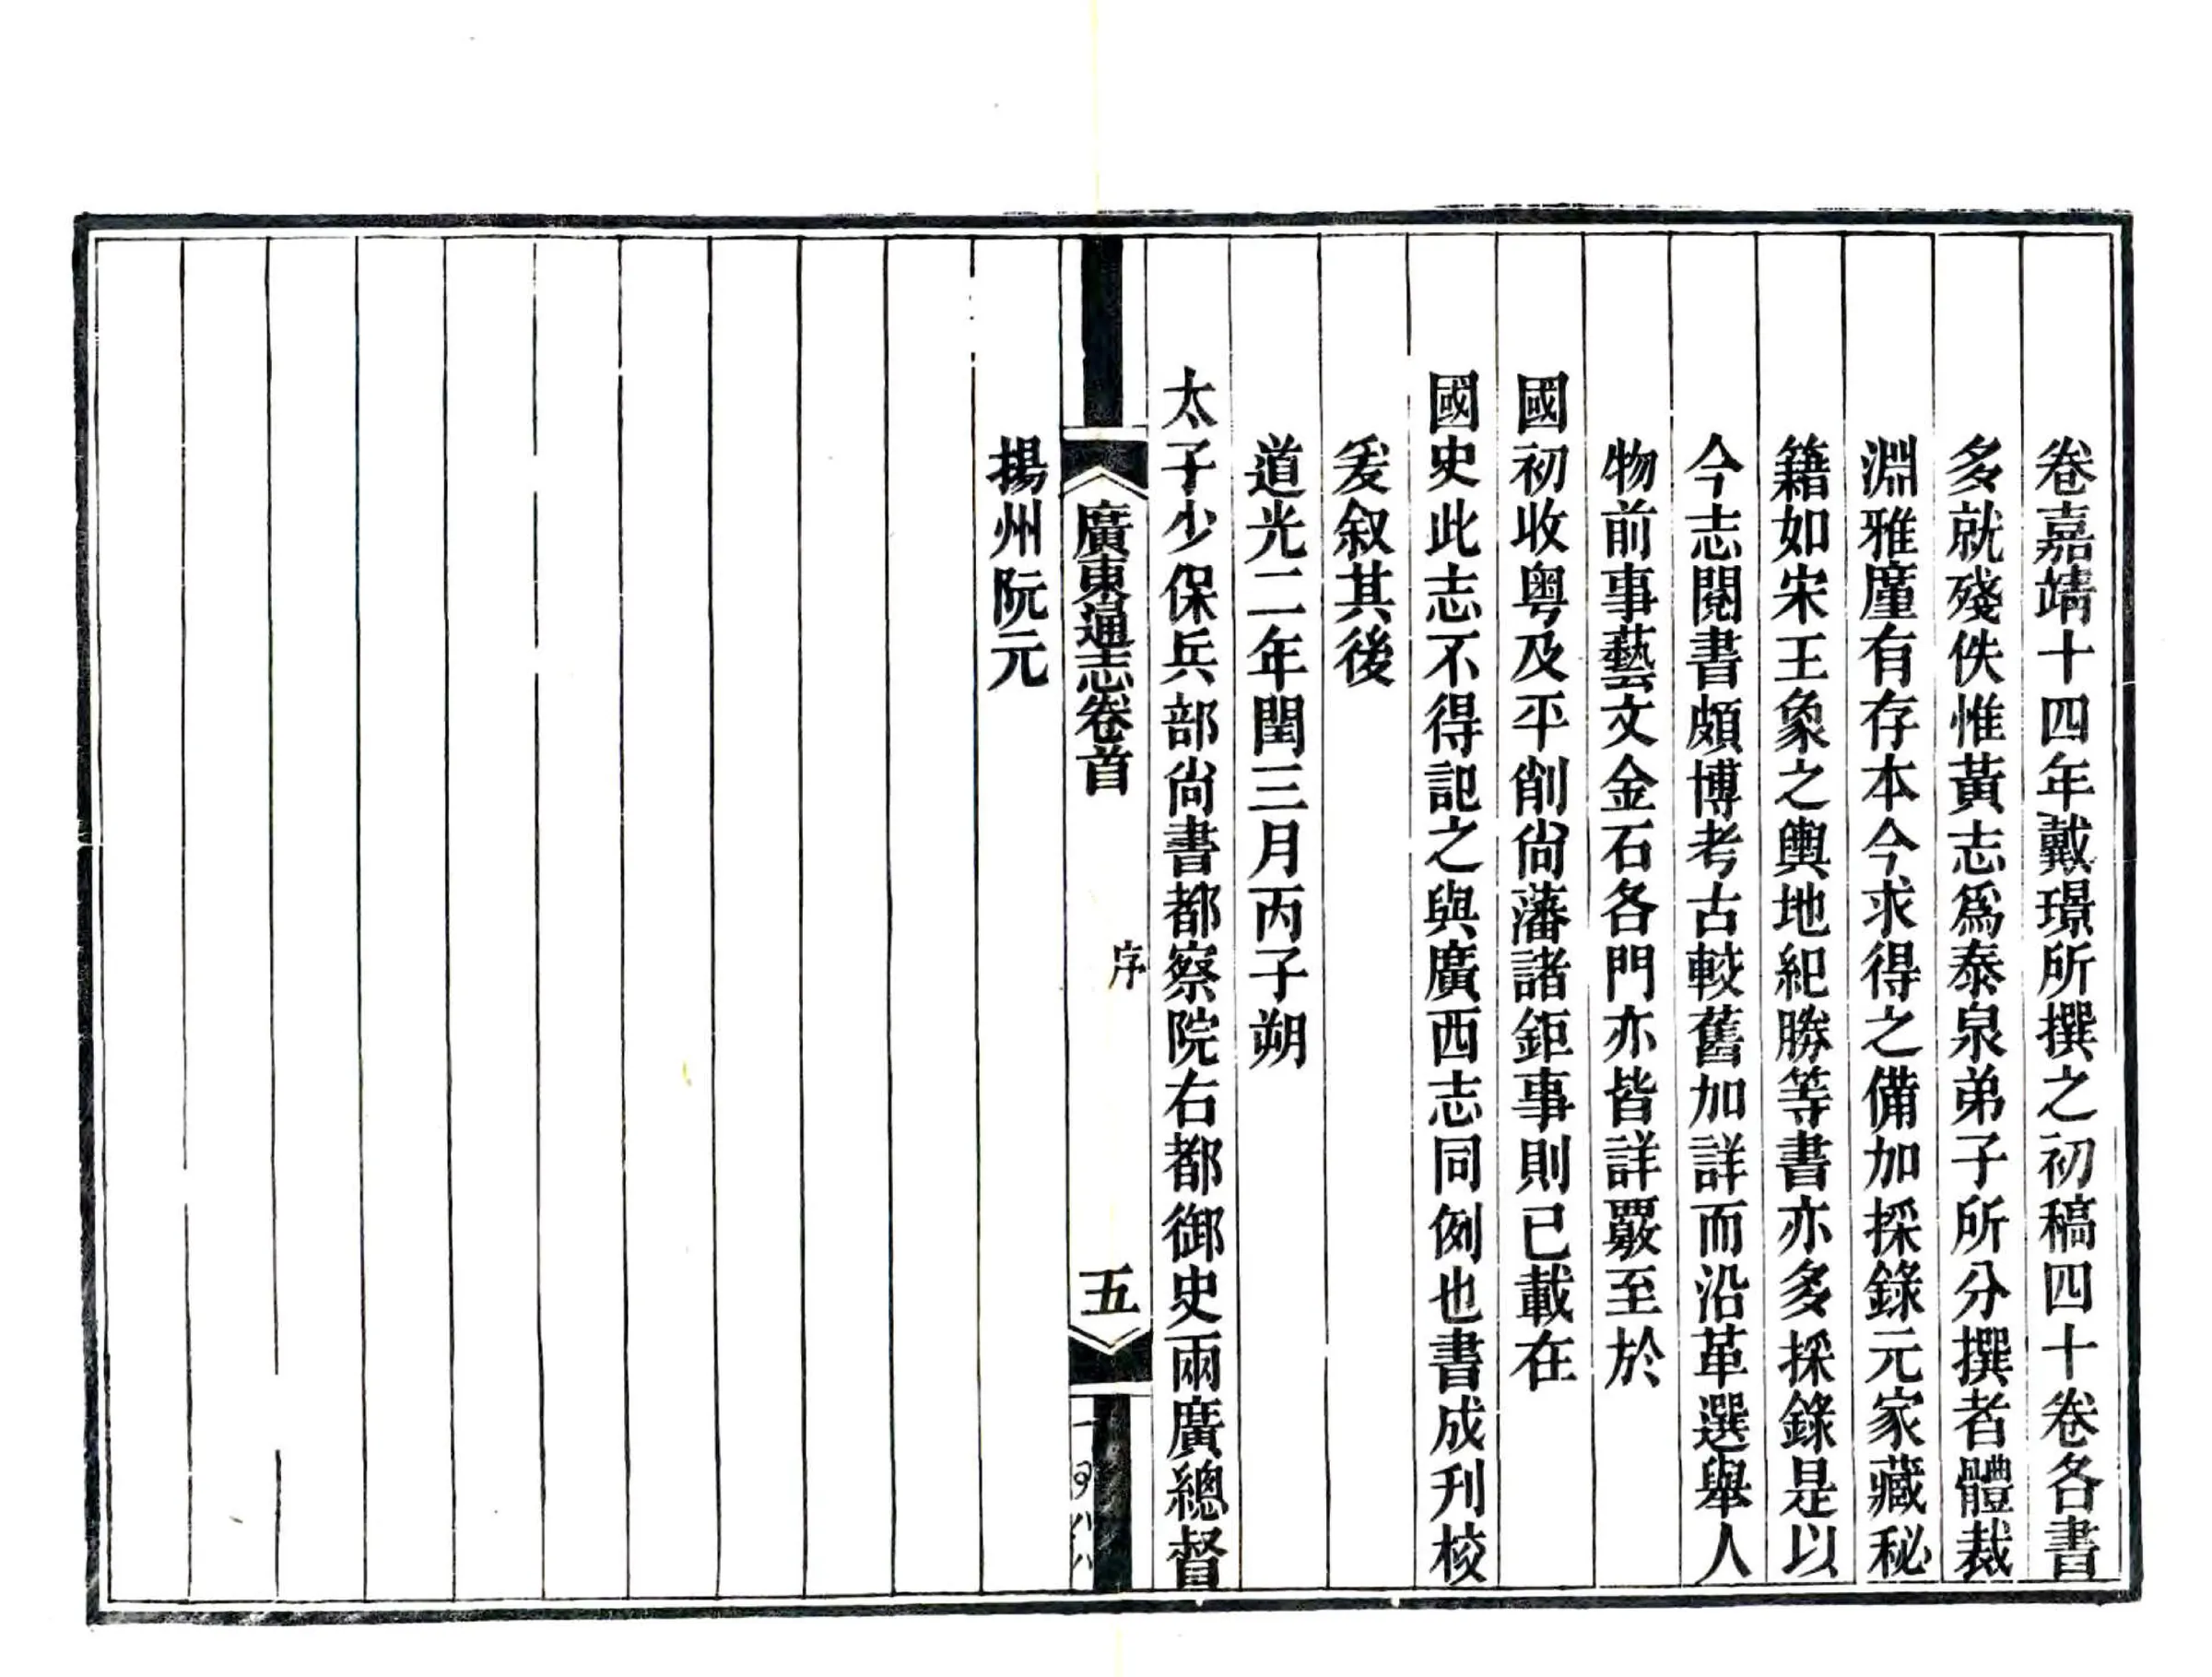 卷嘉靖十四年戴璟所撰之初稿四十卷各書
多就殘佚惟黃志爲泰泉弟子所分撰者體裁
淵雅廑有存本今求得之備加採錄元家藏秘
籍如宋王象之輿地紀勝等書亦多採錄是以
今志閱書頗博考古較舊加詳而沿革選舉人
物前事藝文金石各門亦皆詳覈至於
國初收粵及平削尙藩諸鉅事則已載在
國史此志不得記之與廣西志同例也書成刋校
爰叙其後
道光二年閏三月丙子朔
太子少保兵部尙書都察院右都御史兩廣總督
廣東通志卷首
序
五
揚州阮元